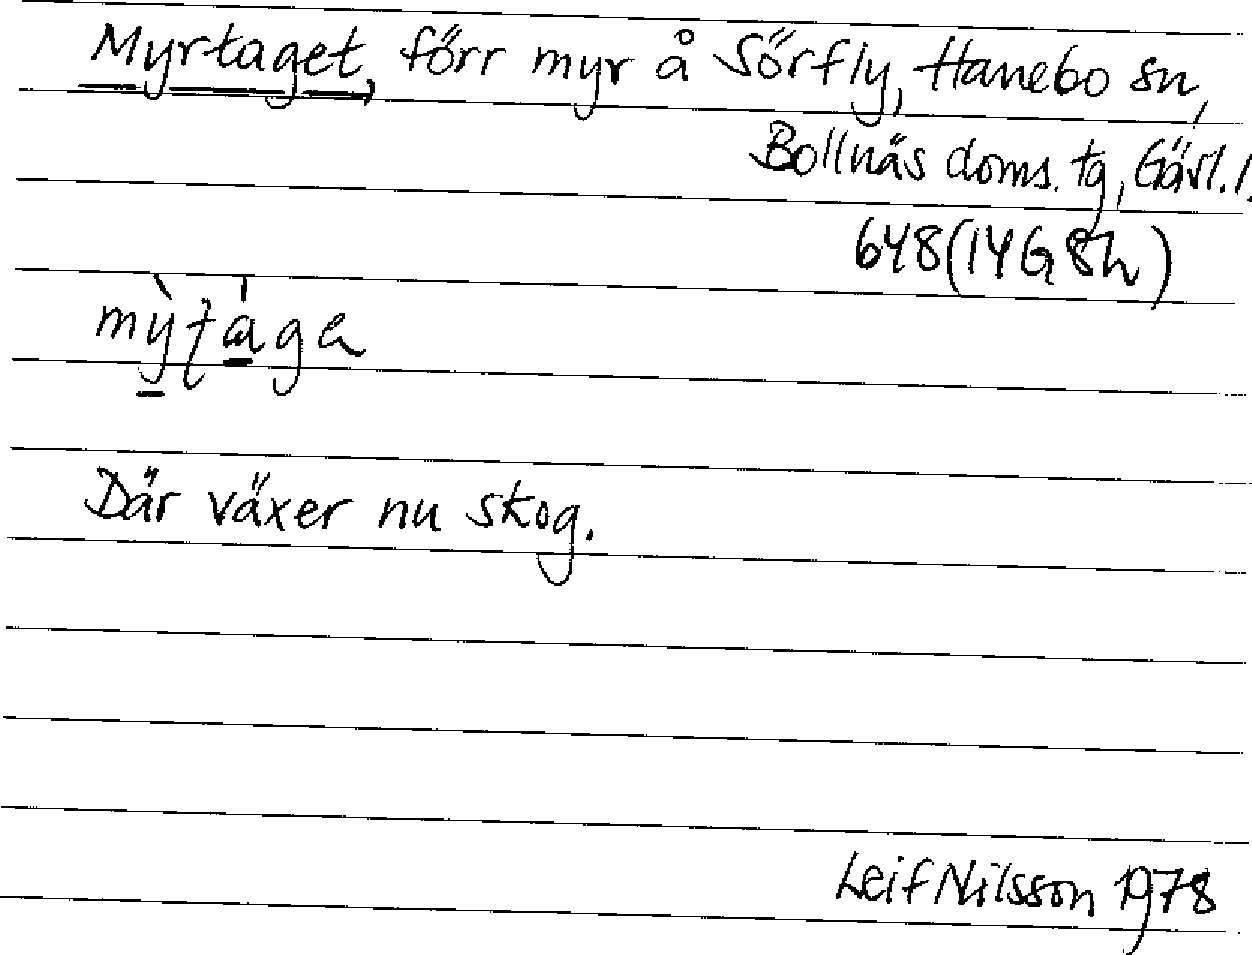 Myrtaget, förr myr å Sörfly, Hanebo sn,
Bollnäs doms. tg, Gävl. l.
648 (14G 8h)
Där växer nu skog.
Leif Nilsson 1978